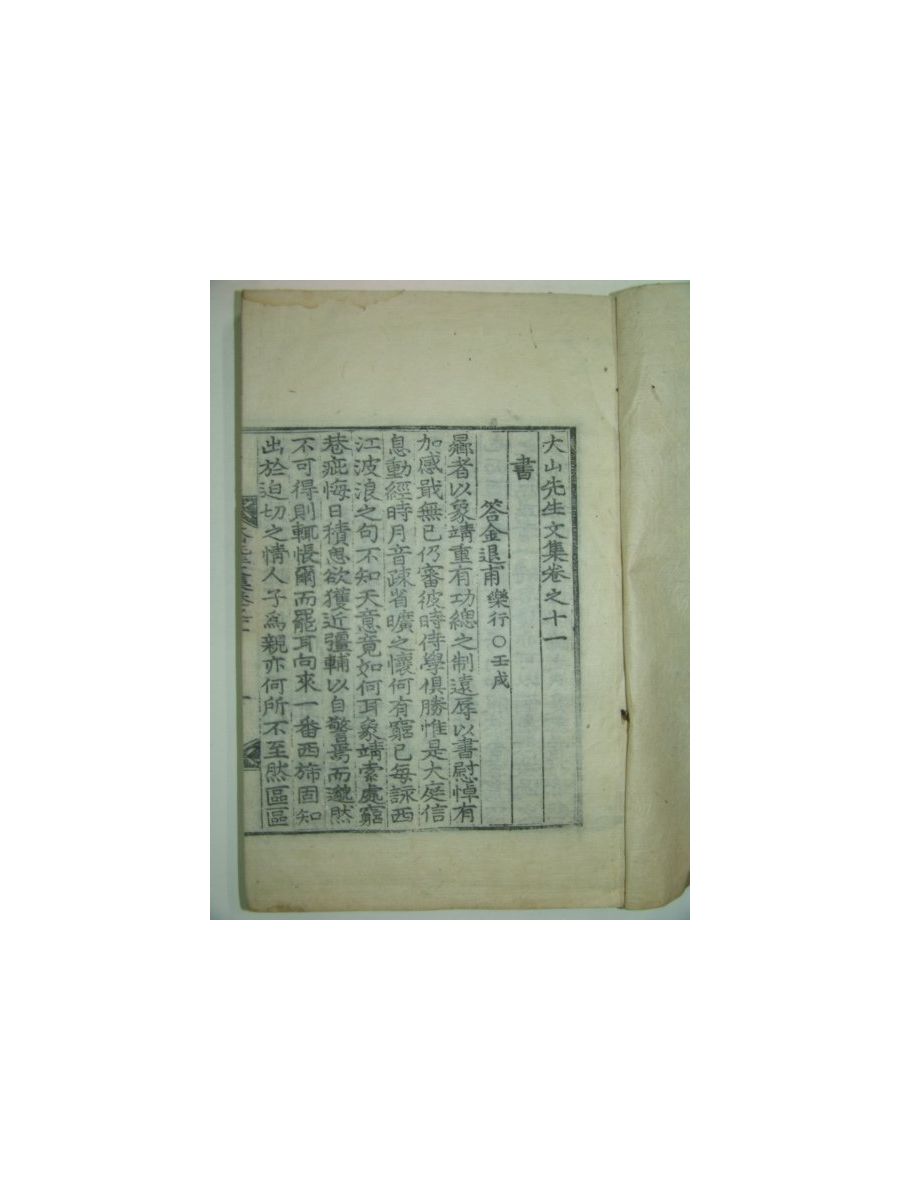 大山先生文集卷之十一
書
答金退甫樂行○壬戌
曏者以象靖重有功緦之制遠辱以書慰悼有
加感戢無已仍審彼時侍學俱勝惟是大庭信
息動經時月音疎省曠之懷何有窮已每詠西
江波浪之句不知天意竟如何耳象靖索處窮
巷疵悔日積思欲獲近彊輔以自警焉而邈然
不可得則輒悵爾而罷耳向來一番西旆固知
出於迫切之情人子爲親亦何所不至然區區